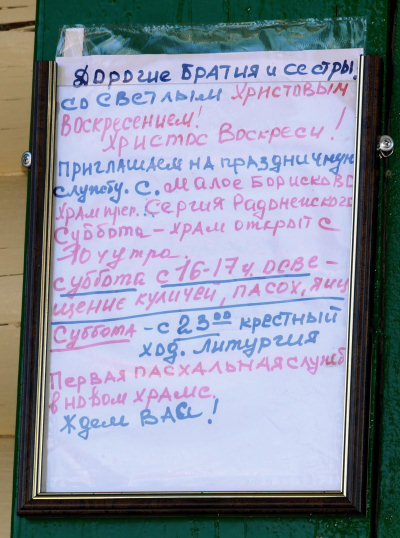 Дорогие Братия и сестры!
со светлым Христовым
Воскресением!
Христос Воскресе!
Приглашаем на праздничную
службу. с. Малое Борисково
Храм преп. Сергия Радонежского
Суббота – храм открыт с
10 ч утра.
суббота с 16-17 ч. осве-
щение куличей, пасох, яиц
Суббота – с 23 00 крестный
ход. Литургия
Первая пасхальная служб
в новом храме.
Ждем ВАС!